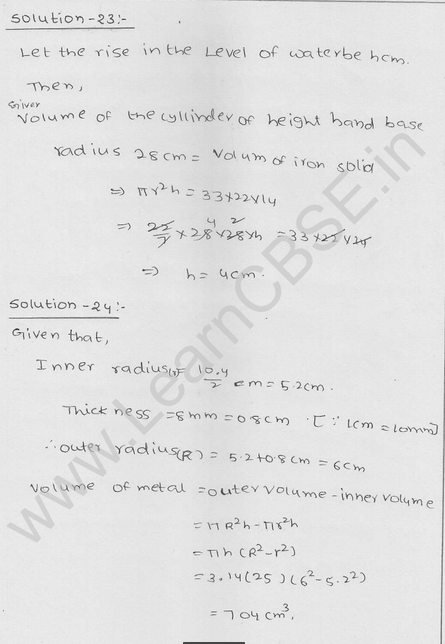 Solution-23:-
Let the rise in the Level of water be hcm.
Then,
Given
Volume of the cyllinder of height h and base
radius 28cm = Volum of iron solid
⇒ πr²h = 33×22×14
⇒ 22/7 × 28 4 × 28 2 × h = 33×22×24
⇒ h = 4cm.
Solution-24:-
Given that,
Inner radius(r) = 10.4/2 cm = 5.2cm.
Thickness = 8mm = 0.8cm · [∵ 1cm = 10mm]
∴ outer radius(R) = 5.2+0.8cm = 6cm
Volume of metal = outer volume - inner volume
= πR²h - πr²h
= πh (R²-r²)
= 3.14(25)(6²-5.2²)
= 704cm³.
www.LearnCBSE.in